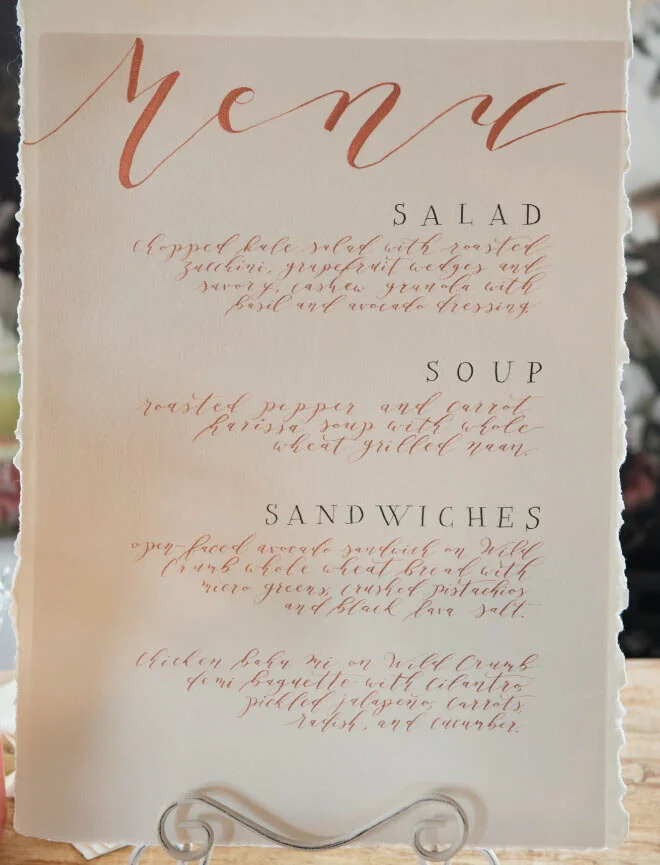 Menu
SALAD
Chopped kale salad with roasted
zucchini, grapefruit wedges and
savory, cashew granola with
basil and avocado dressing.
SOUP
roasted pepper and carrot
harissa soup with whole
wheat grilled naan.
SANDWICHES
open-faced avocado sandwich on Wild
Crumb whole wheat bread with
micro greens, crushed pistachios
and black lava salt.
Chicken bahn mi on Wild Crumb
demi baguette with cilantro,
pickled jalapeño, carrots,
radish, and cucumber.